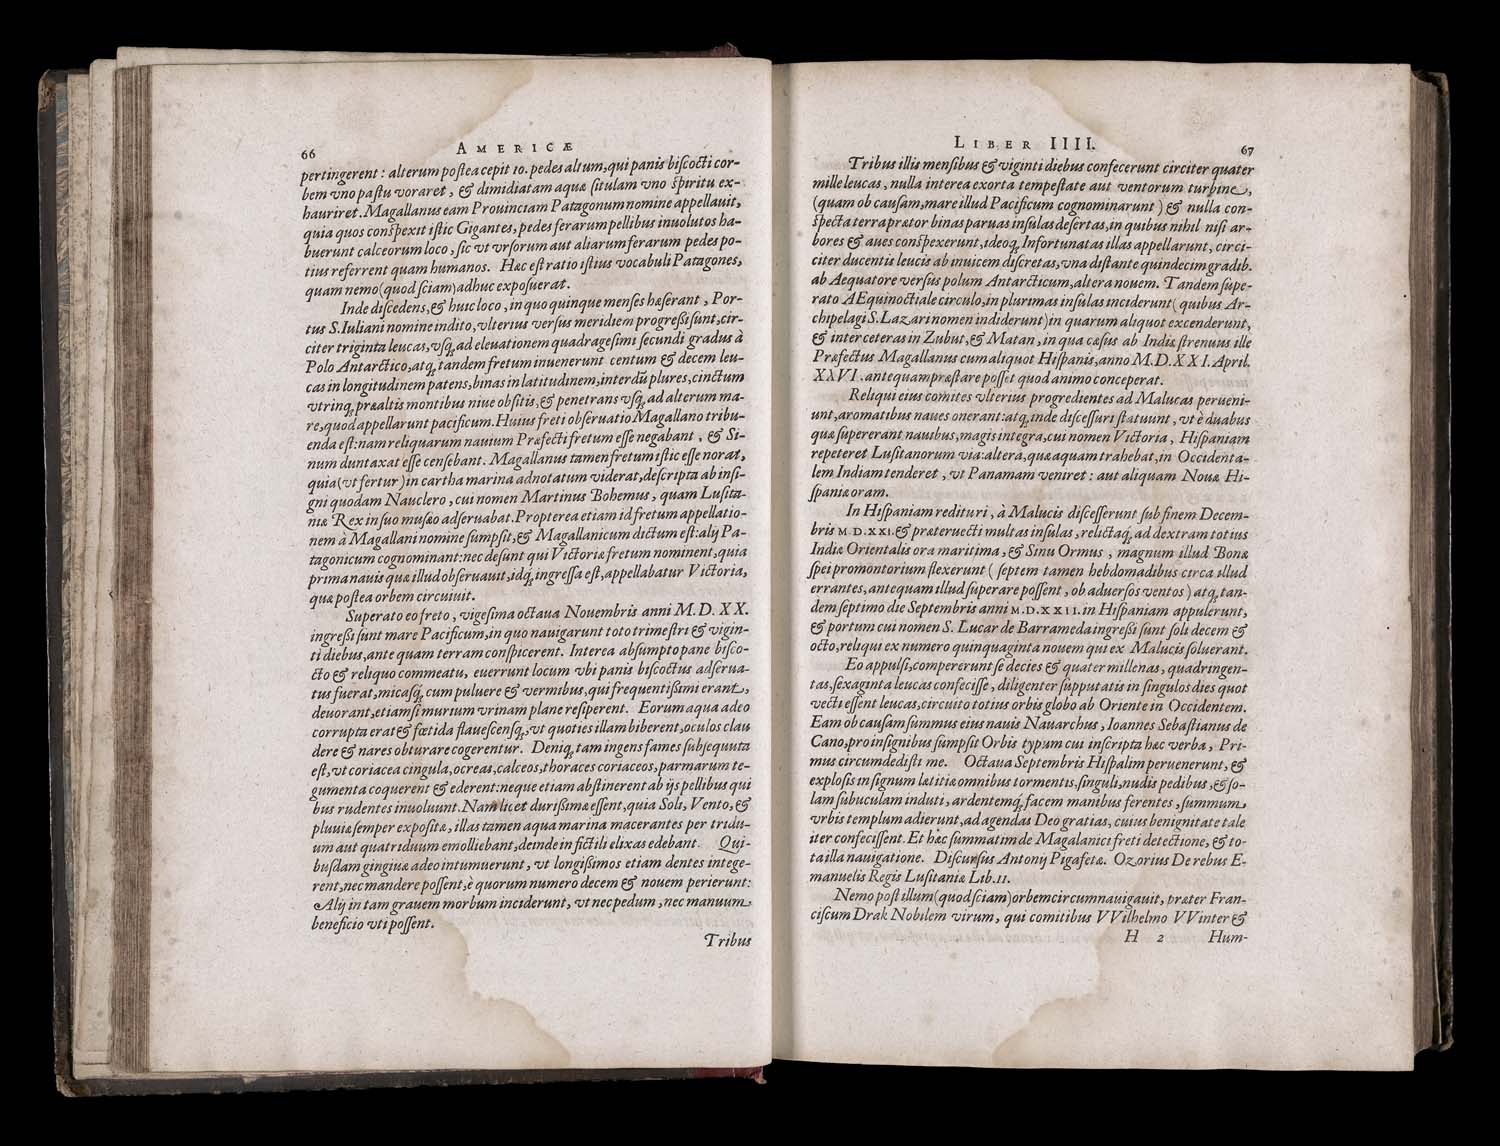 66
AMERICÆ
pertingerent: alterum postea cepit 10. pedes altum, qui panis biscocti cor-
bem vno pastu voraret, & dimidiatam aquæ situlam vno spiritu ex-
hauriret. Magallanus eam Prouinciam Patagonum nomine appellauit,
quia quos conspexit istic Gigantes, pedes ferarum pellibus inuolutos ha-
buerunt calceorum loco, sic vt vrsorum aut aliarum ferarum pedes po-
tius referrent quam humanos. Hæc est ratio istius vocabuli Patagones,
quam nemo (quod sciam) adhuc exposuerat.
Inde discedens, & huic loco, in quo quinque menses hæserant, Por-
tus S. Iuliani nomine indito, vlterius versus meridiem progreßi sunt, cir-
citer triginta leucas, vsq; ad eleuationem quadragesimi secundi gradus à
Polo Antarctico, atq; tandem fretum inuenerunt centum & decem leu-
cas in longitudinem patens, binas in latitudinem, interdū plures, cinctum
vtrinq; præaltis montibus niue obsitis, & penetrans vsq; ad alterum ma-
re, quod appellarunt pacificum. Huius freti obseruatio Magallano tribu-
enda est: nam reliquarum nauium Præfecti fretum esse negabant, & Si-
num duntaxat esse censebant. Magallanus tamen fretum istic esse norat,
quia (vt fertur) in cartha marina adnotatum viderat, descripta ab insi-
gni quodam Nauclero, cui nomen Martinus Bohemus, quam Lusita-
niæ Rex in suo musæo adseruabat. Propterea etiam id fretum appellatio-
nem à Magallani nomine sumpsit, & Magallanicum dictum est: alij Pa-
tagonicum cognominant: nec desunt qui Victoriæ fretum nominent, quia
prima nauis quæ illud obseruauit, idq; ingressa est, appellabatur Victoria,
quæ postea orbem circuiuit.
Superato eo freto, vigesima octaua Nouembris anni M. D. XX.
ingreßi sunt mare Pacificum, in quo nauigarunt toto trimestri & vigin-
ti diebus, ante quam terram conspicerent. Interea absumpto pane bisco-
cto & reliquo commeatu, euerrunt locum vbi panis biscoctus adserua-
tus fuerat, micasq; cum puluere & vermibus, qui frequentißimi erant,
deuorant, etiamsi murium vrinam plane resiperent. Eorum aqua adeo
corrupta erat & fœtida flauescensq;, vt quoties illam biberent, oculos clau
dere & nares obturare cogerentur. Deniq; tam ingens fames subsequuta
est, vt coriacea cingula, ocreas, calceos, thoraces coriaceos, parmarum te-
gumenta coquerent & ederent: neque etiam abstinerent ab ijs pellibus qui
bus rudentes inuoluunt. Nam licet durißimæ essent, quia Soli, Vento, &
pluuiæ semper expositæ, illas tamen aqua marina macerantes per tridu-
um aut quatriduum emolliebant, deinde in fictili elixas edebant. Qui-
busdam gingiuæ adeo intumuerunt, vt longißimos etiam dentes intege-
rent, nec mandere possent, è quorum numero decem & nouem perierunt:
Alij in tam grauem morbum inciderunt, vt nec pedum, nec manuum
beneficio vti possent.
Tribus
LIBER IIII.
67
Tribus illis mensibus & viginti diebus confecerunt circiter quater
mille leucas, nulla interea exorta tempestate aut ventorum turbine,
(quam ob causam, mare illud Pacificum cognominarunt) & nulla con-
specta terra præter binas paruas insulas desertas, in quibus nihil nisi ar-
bores & aues conspexerunt, ideoq; Infortunatas illas appellarunt, circi-
citer ducentis leucis ab inuicem discretas, vna distante quindecim gradib.
ab Aequatore versus polum Antarcticum, altera nouem. Tandem supe-
rato AEquinoctiale circulo, in plurimas insulas inciderunt (quibus Ar-
chipelagi S. Lazari nomen indiderunt) in quarum aliquot excenderunt,
& inter ceteras in Zubut, & Matan, in qua cæsus ab Indis strenuus ille
Præfectus Magallanus cum aliquot Hispanis, anno M. D. XXI. April.
XXVI. antequam præstare posset quod animo conceperat.
Reliqui eius comites vlterius progredientes ad Malucas perueni-
unt, aromatibus naues onerant: atq; inde discessuri statuunt, vt è duabus
quæ supererant nauibus, magis integra, cui nomen Victoria, Hispaniam
repeteret Lusitanorum via: altera, quæ aquam trahebat, in Occidenta-
lem Indiam tenderet, vt Panamam veniret: aut aliquam Nouæ Hi-
spaniæ oram.
In Hispaniam redituri, à Malucis discesserunt sub finem Decem-
bris M. D. XXI. & præteruecti multas insulas, relictaq; ad dextram totius
Indiæ Orientalis ora maritima, & Sinu Ormus, magnum illud Bonæ
spei promontorium flexerunt (septem tamen hebdomadibus circa illud
errantes, antequam illud superare possent, ob aduersos ventos) atq; tan-
dem septimo die Septembris anni M. D. XXII. in Hispaniam appulerunt,
& portum cui nomen S. Lucar de Barrameda ingreßi sunt soli decem &
octo, reliqui ex numero quinquaginta nouem qui ex Malucis soluerant.
Eo appulsi, compererunt se decies & quater millenas, quadringen-
tas, sexaginta leucas confecisse, diligenter supputatis in singulos dies quot
vecti essent leucas, circuito totius orbis globo ab Oriente in Occidentem.
Eam ob causam summus eius nauis Nauarchus, Ioannes Sebastianus de
Cano, pro insignibus sumpsit Orbis typum cui inscripta hæc verba, Pri-
mus circumdedisti me. Octaua Septembris Hispalim peruenerunt, &
explosis in signum lætitiæ omnibus tormentis, singuli, nudis pedibus, & so-
lam subuculam induti, ardentemq; facem manibus ferentes, summum
vrbis templum adierunt, ad agendas Deo gratias, cuius benignitate tale
iter confecissent. Et hæc summatim de Magalanici freti detectione, & to-
ta illa nauigatione. Discursus Antonij Pigafetæ. Ozorius De rebus E-
manuelis Regis Lusitaniæ Lib. 11.
Nemo post illum (quod sciam) orbem circumnauigauit, præter Fran-
ciscum Drak Nobilem virum, qui comitibus VVilhelmo VVinter &
H 2 Hum-